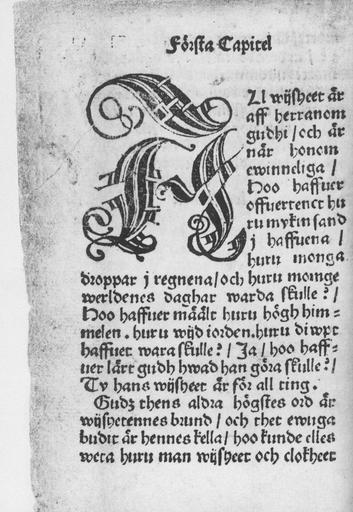 Förſta Capitel
All wijſheet är
aff herranom
gudhi / och är
när honom
ewinneliga /
Hoo haffuer
offuertenct hu
ru mykin ſand
j haffuena /
huru monga
droppar j regnena / och huru moinge
werldenes daghar warda ſkulle? /
Hoo haffuer mäält huru högh him=
melen. huru wijd iorden. huru diwpt
haffuet wara ſkulle? / Ja / hoo haff=
uer lärt gudh hwad han göra ſkulle? /
Ty hans wijſheet är för all ting.
Gudz thens aldra högſtes ord är
wijſhetennes brund / och thet ewiga
budit är hennes kella / hoo kunde elles
weta huru man wijſheet och clokheet